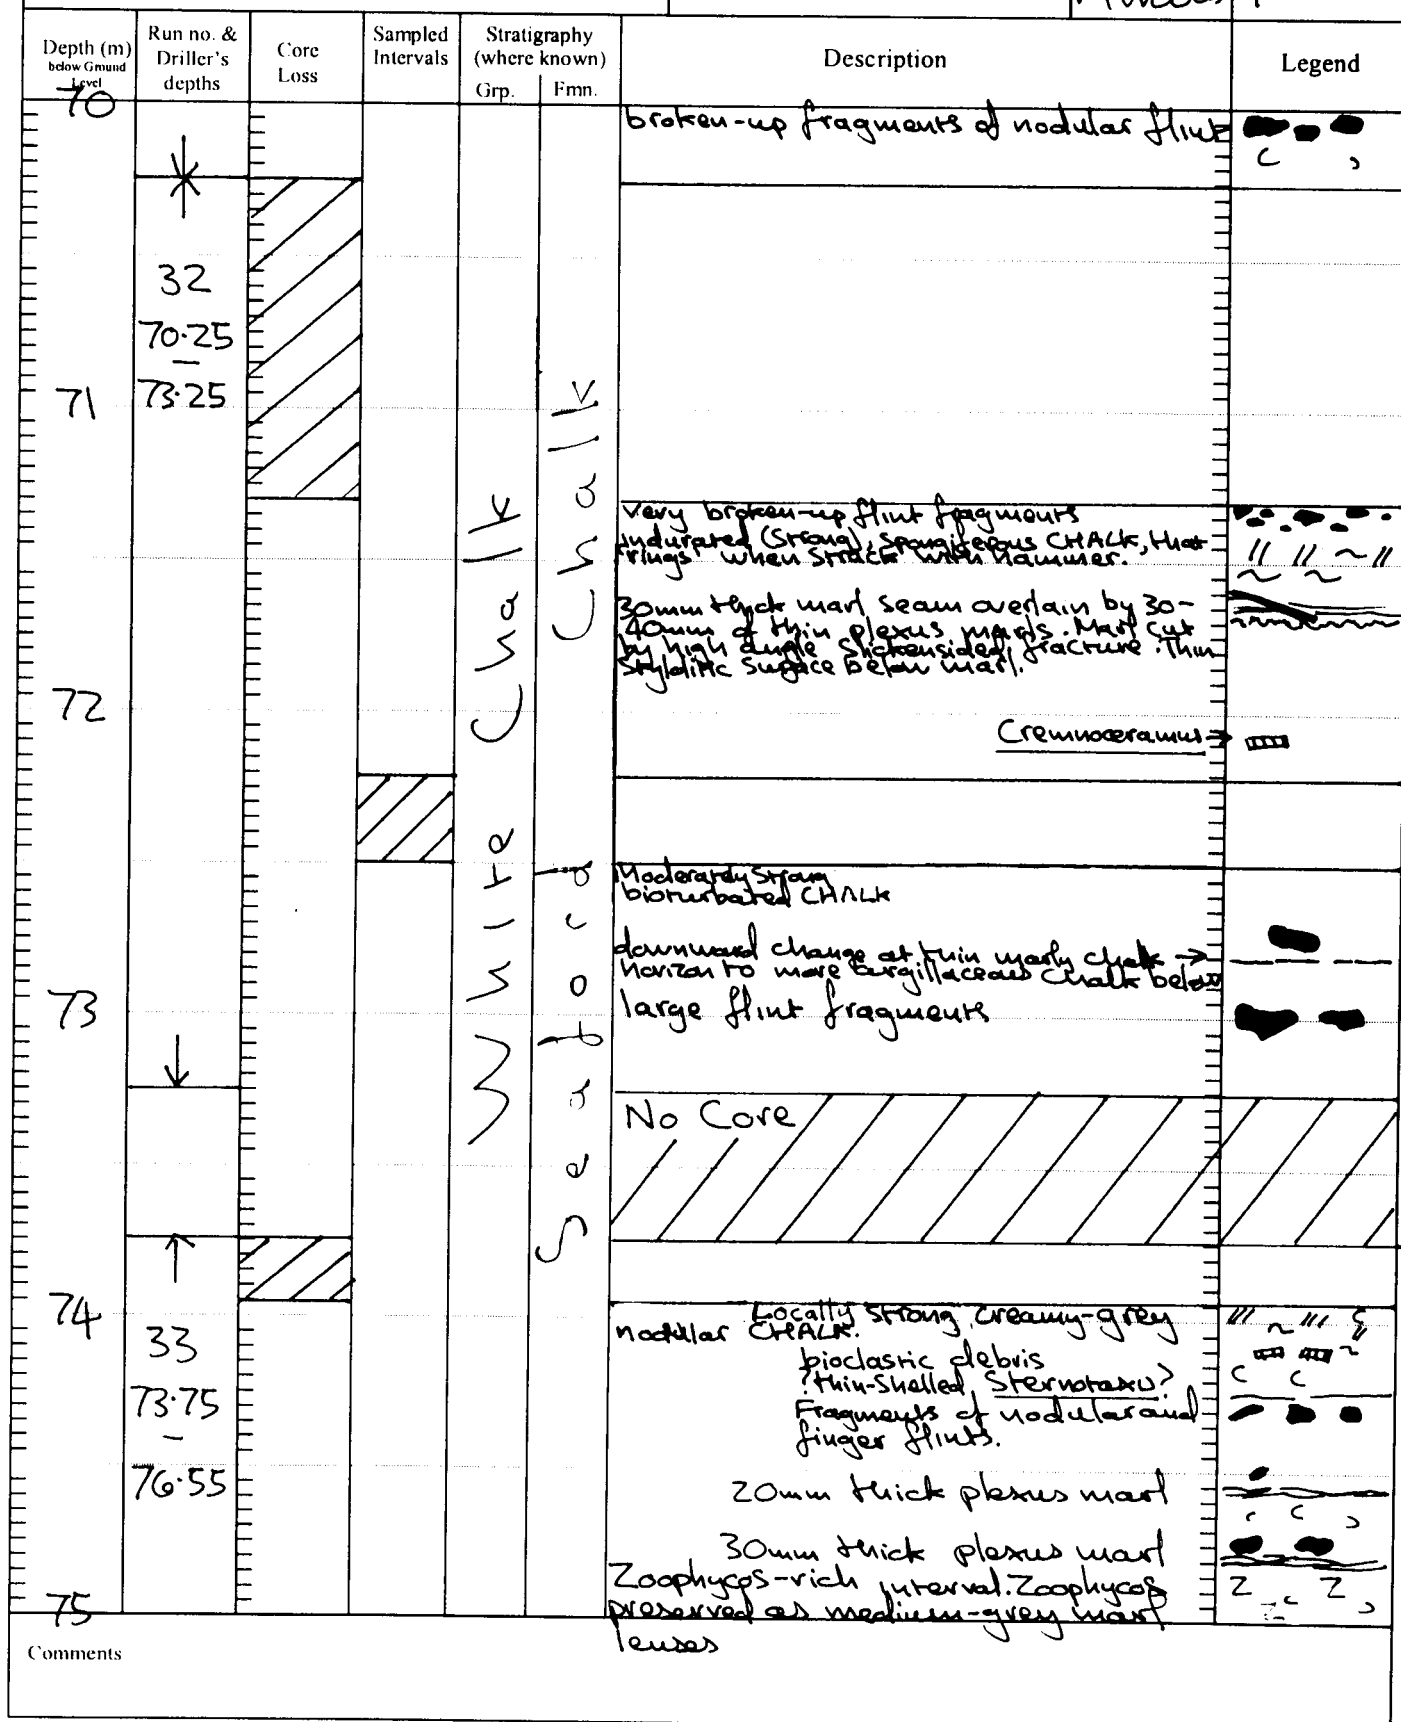 Depth (m)
below Ground
Level
Run no. &
Driller's
depths
Core
Loss
Sampled
Intervals
Stratigraphy
(where known)
Grp.
Fmn.
Description
Legend
70
71
72
73
74
75
32
70·25
–
73·25
33
73·75
–
76·55
White Chalk
Seaford Chalk
broken-up fragments of nodular flint
very broken-up flint fragments
indurated (strong), spongiferous CHALK, that
'rings' when struck with hammer.
30mm thick marl seam overlain by 30-
40mm of thin plexus marls. Marl cut
by high angle slickensided fracture. Thin
stylolitic surface below marl.
Cremnoceramus →
Moderately strong
bioturbated CHALK
downward change at thin marly chalk →
horizon to more argillaceous chalk below
large flint fragments
No Core
Locally strong creamy-grey
nodular CHALK.
bioclastic debris
?thin-shelled Sternotaxis?
Fragments of nodular and
finger flints.
20mm thick plexus marl
30mm thick plexus marl
Zoophycos-rich interval. Zoophycos
preserved as medium-grey marl
lenses
Z Z
Comments